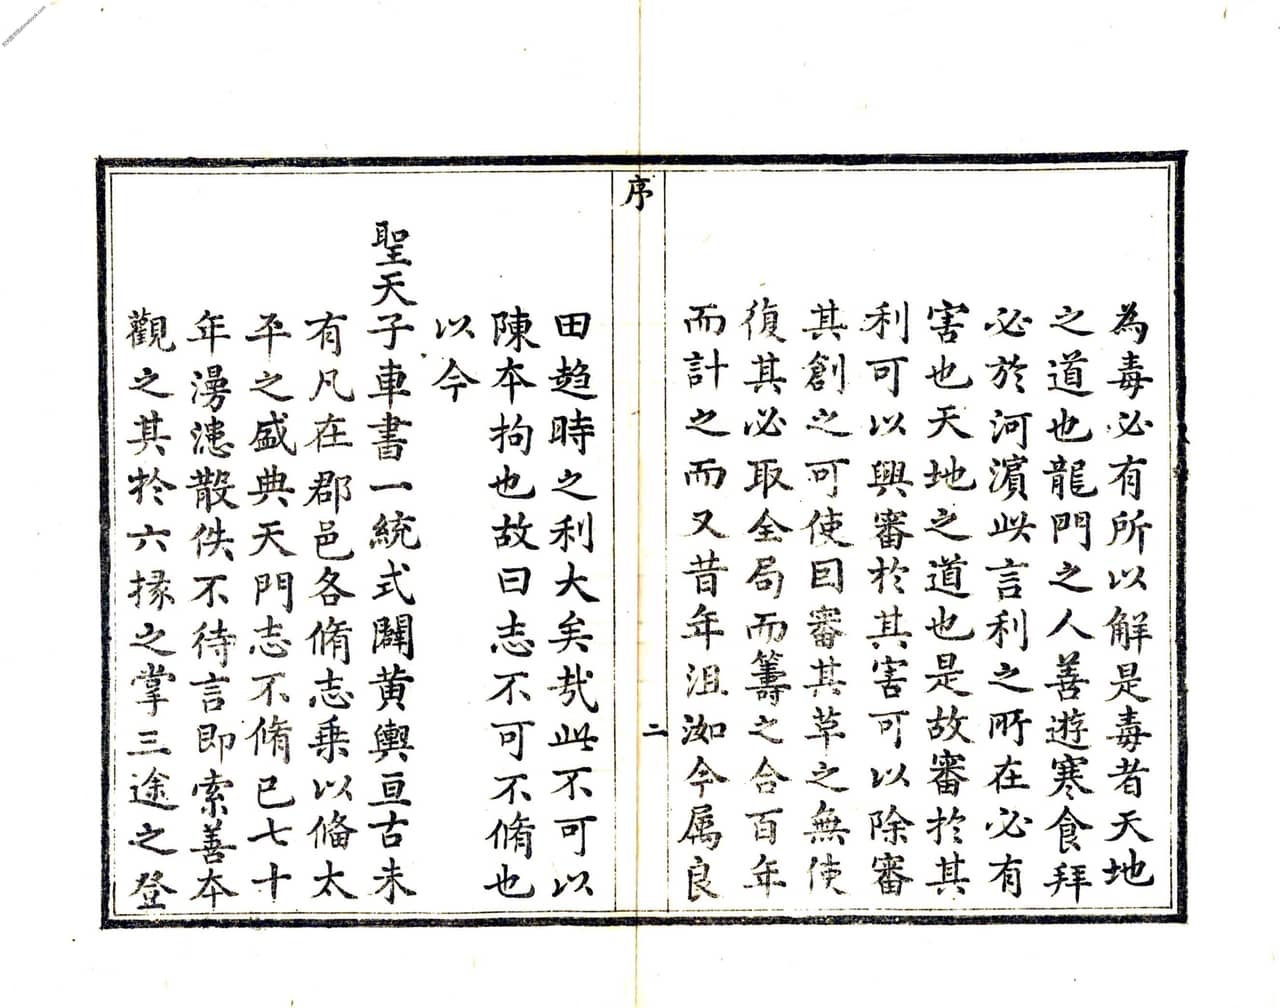 為毒必有所以解是毒者天地
之道也龍門之人善遊寒食拜
必於河濵此言利之所在必有
害也天地之道也是故審於其
利可以興審於其害可以除審
其創之可使因審其草之無使
復其必取全局而籌之合百年
而計之而又昔年沮洳今属良
序
二
田趋時之利大矣哉此不可以
陳本拘也故曰志不可不脩也
以今
聖天子車書一統式闢黄輿亘古未
有凡在郡邑各脩志乗以俻太
平之盛典天門志不脩已七十
年漫漶散佚不待言即索善本
觀之其於六掾之掌三途之登